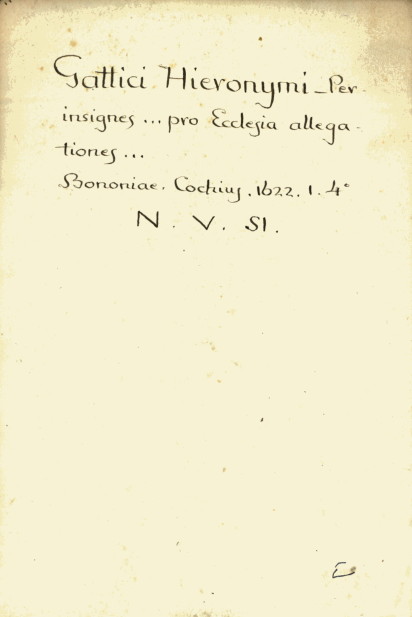 Gattici Hieronymi - Per-
insignes ... pro Ecclesia allega-
tiones ...
Bononiae. Cochius. 1622. 1. 4°
N. V. 51.